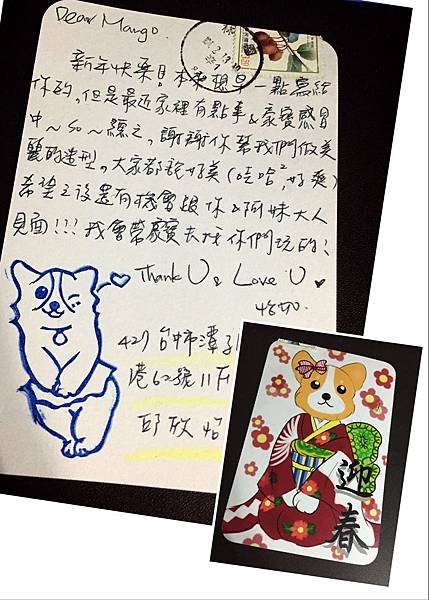 Dear Mango.
新年快樂！本來想早一點寫給
你的，但是最近家裡有點事&家寶感冒
中～So～總之，謝謝你幫我們做美
麗的造型，大家都說好美(哇哈²,好爽)
希望之後還有機會跟你&阿妹大人
見面!!!我會帶家寶去找你們玩的!
Thank U & Love U
427台中市潭子
港62號11F
邱欣怡
迎
春